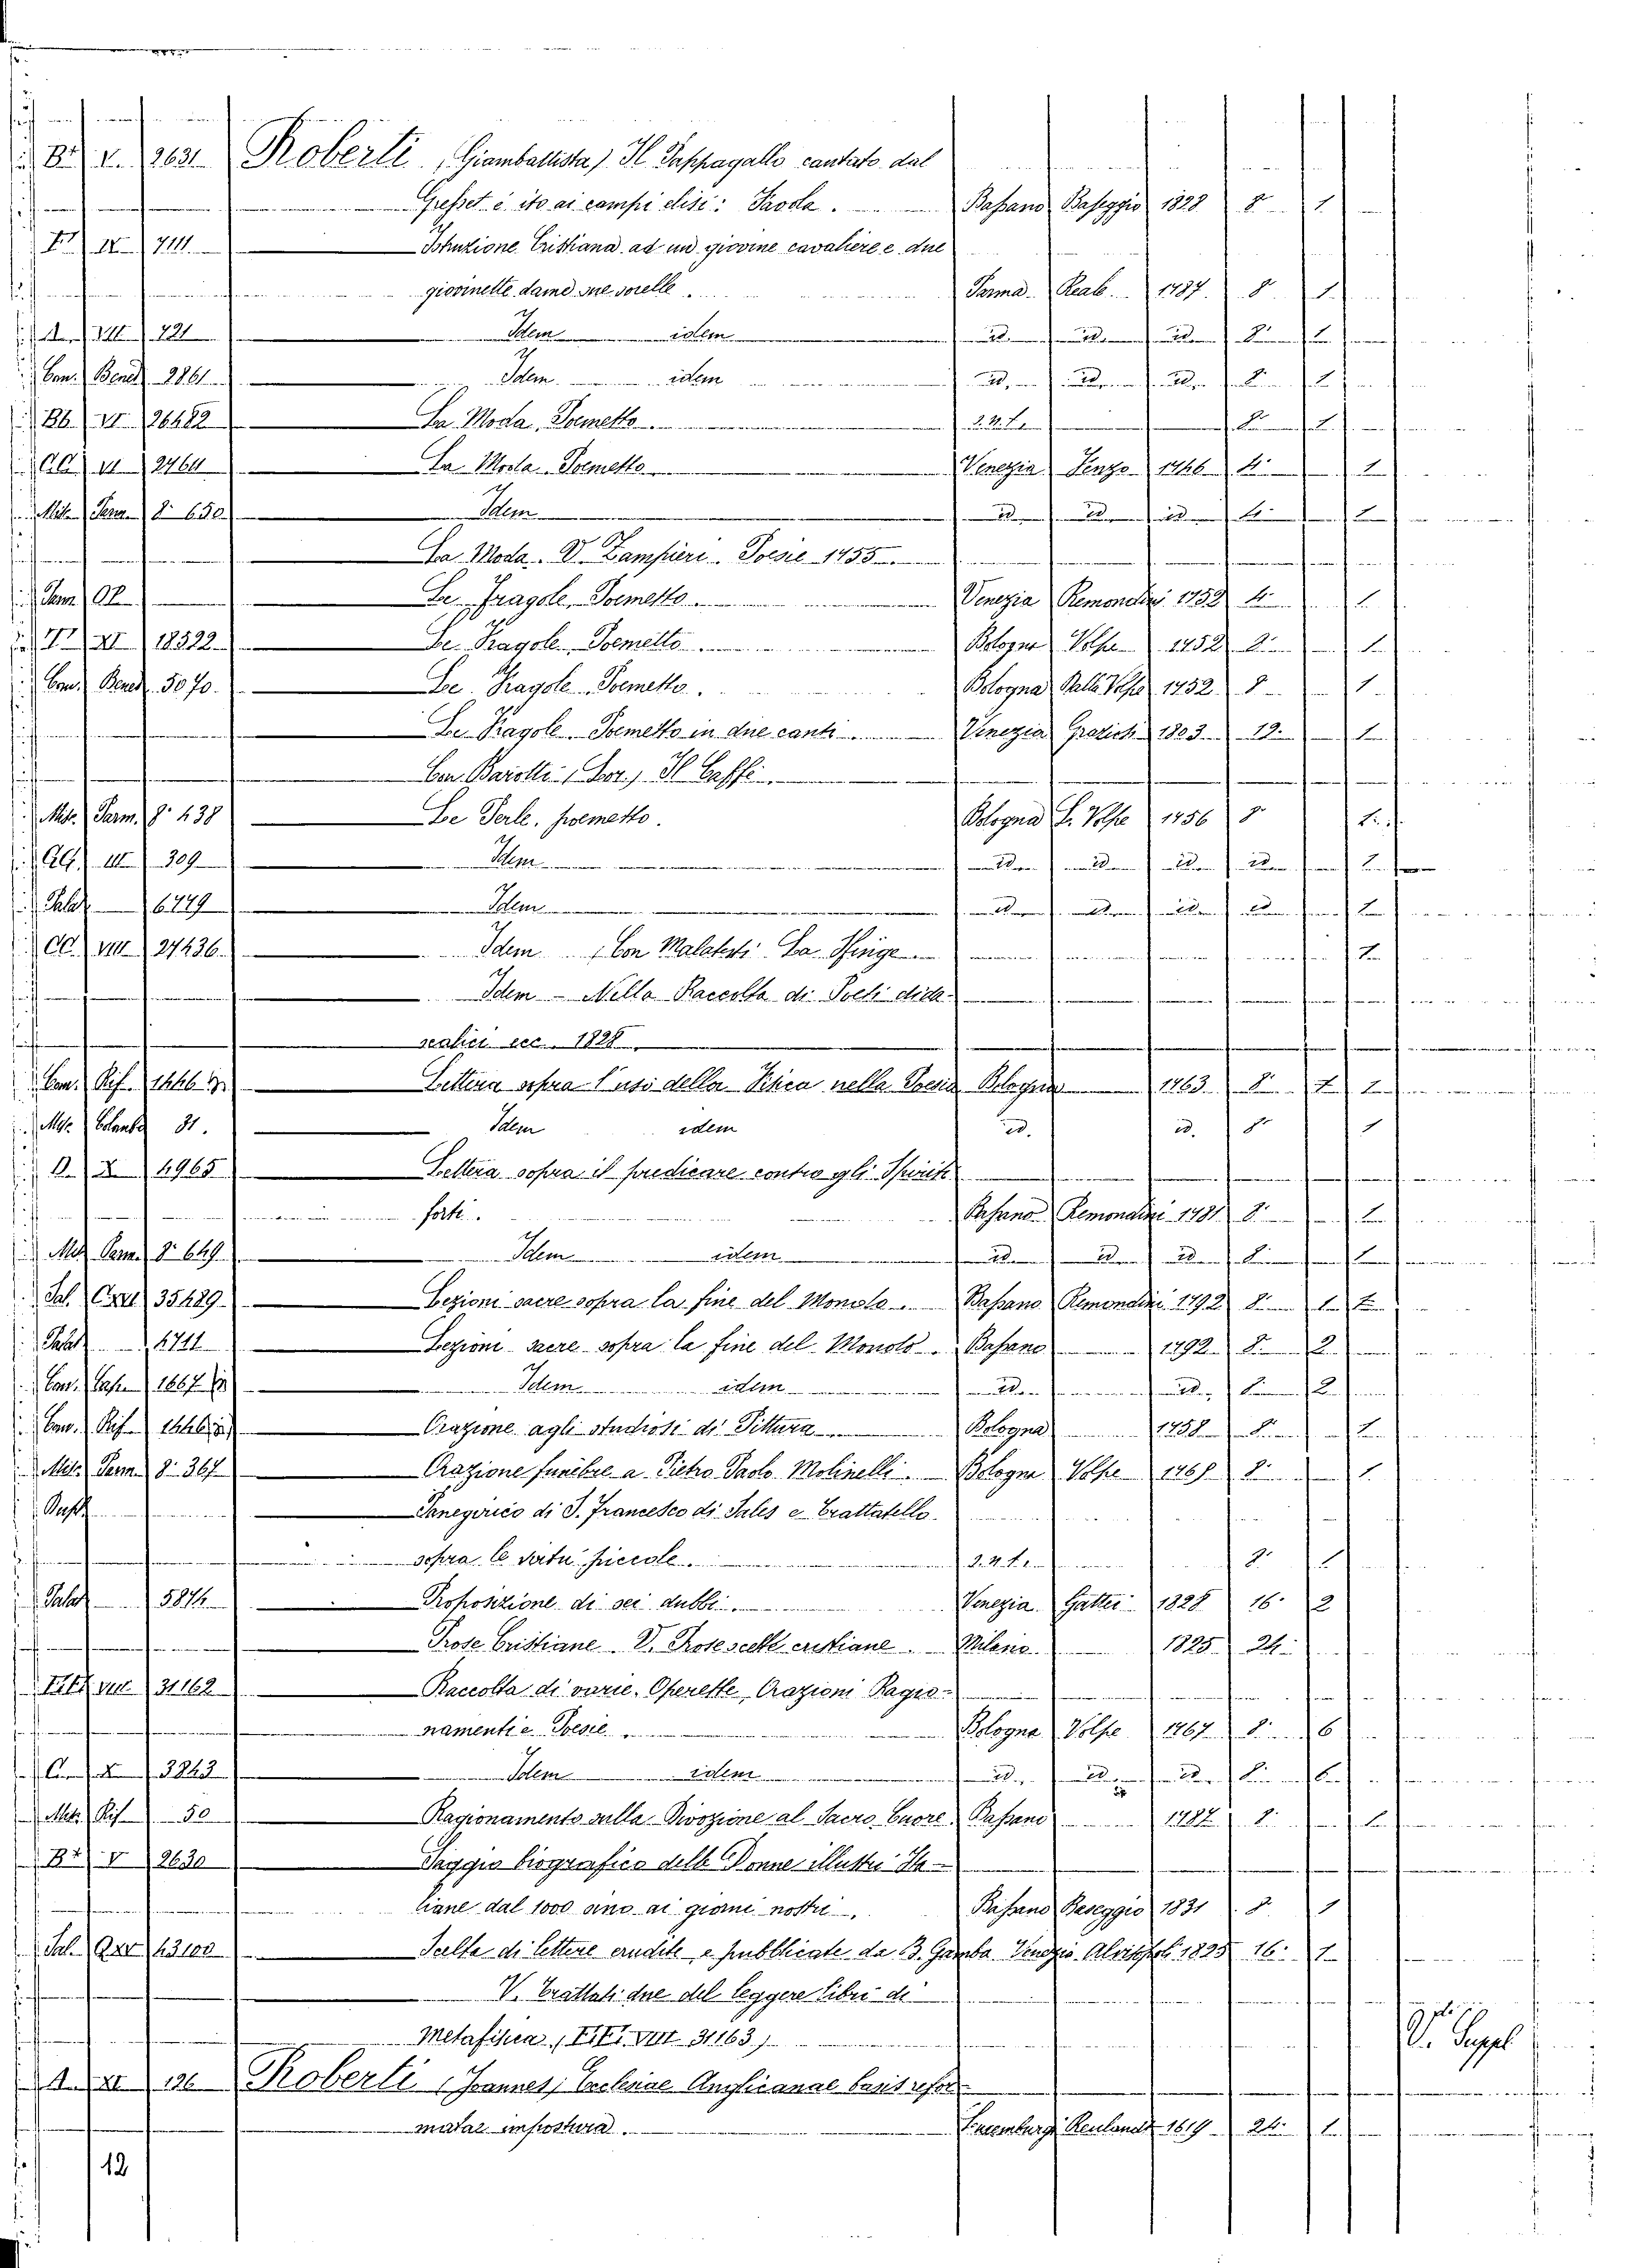 B² V. 2631 Roberti, (Giambattista) Il Pappagallo cantato dal
Gresset è ito ai campi elisi: Favola. Bassano Baseggio 1828 8° 1
IV 7111 Istruzione Cristiana ad un giovine cavaliere e due
giovinette dame sue sorelle. Parma Reale 1787. 8 1
VII 721 Idem idem id. id. id. 8° 1
Con. Bened. 2861 Idem idem id. id. id. 8 1
Bb. VI 26482 La Moda, Poemetto S.N.T. 8° 1
VI 2764 La Moda Poemetto Venezia Fenzo 1746 4° 1
Misc. Parm. 8° 650 Idem id. id. id. 4° 1
La Moda. V. Zampieri. Poesie 1755.
Le Fragole, Poemetto. Venezia Remondini 1752 4° 1
XI 18522 Le Fragole, Poemetto Bologna Volpe 1752 8° 1
Con. Bened. 5070. Le Fragole Poemetto. Bologna Dalla Volpe 1752 8 1
Le Fragole. Poemetto in due canti Venezia Gratich 1803 12. 1
Con Barotti, Il Caffè.
Misc. Parm. 8° 438 Le Perle, poemetto. Bologna L. Volpe 1756 8° 1
III 309 Idem id. id. id. id. 1
Palat. 6779 Idem id. id. id. id. 1
CC. VIII 27436. Idem (Con Malatesti La Sfinge 1
Idem - Nella Raccolta di Poeti dida-
scalici ecc. 1828
Con. Rif. 1446 Lettera sopra l'uso della Fisica nella Poesia Bologna 1763 8° 1
Misc. Colomb. 31. Idem idem id. id. 8° 1
D. X 4965 Lettera sopra il predicare contro gli Spiriti
forti. Bassano Remondini 1781 8° 1
Misc. Parm. 8° 649 Idem idem id. id. id. 8° 1
Sal. 35489. Lezioni sacre sopra la fine del Mondo. Bassano Remondini 1792 8° 1
Palat. 4711 Lezioni sacre sopra la fine del Mondo. Bassano 1792 8° 2
Con. 1867 Idem idem id. id. 8° 2
Con. Rif. 1446 Orazione agli studiosi di Pittura Bologna 1758 8° 1
Misc. Parm. 8° 367 Orazione funebre a Pietro Paolo Molinelli. Bologna Volpe 1768 8° 1
Panegirico di S. Francesco di Sales e Trattatello
sopra le virtù piccole. S.N.T. 8° 1
Palat. 5874 Proposizione di sei dubbi. Venezia Gattei 1828 16° 2
Prose Cristiane V. Prose scelte cristiane. Milano 1825 24°
VIII 31162 Raccolta di varie Operette, Orazioni Ragio-
namenti e Poesie Bologna Volpe 1767 8° 6
X 3843 Idem idem id. id. id. 8° 6
Misc. Rif. 50 Ragionamento sulla Divozione al Sacro Cuore Bassano 1787 8° 1
B² V 2630 Saggio biografico delle Donne illustri Ita-
liane dal 1000 sino ai giorni nostri. Bassano Baseggio 1831 8 1
Sal. 43100 Scelta di lettere erudite e pubblicate da B. Gamba Venezia Alvisopoli 1825 16° 1
V. Trattati due del leggere libri di
Metafisica, ( VIII 31163)
V. Suppl
A. XI 126 Roberti (Joannes) Ecclesiae Anglicanae basis refor-
matae impostura. Luxemburgi Reulandt 1619 24° 1
12